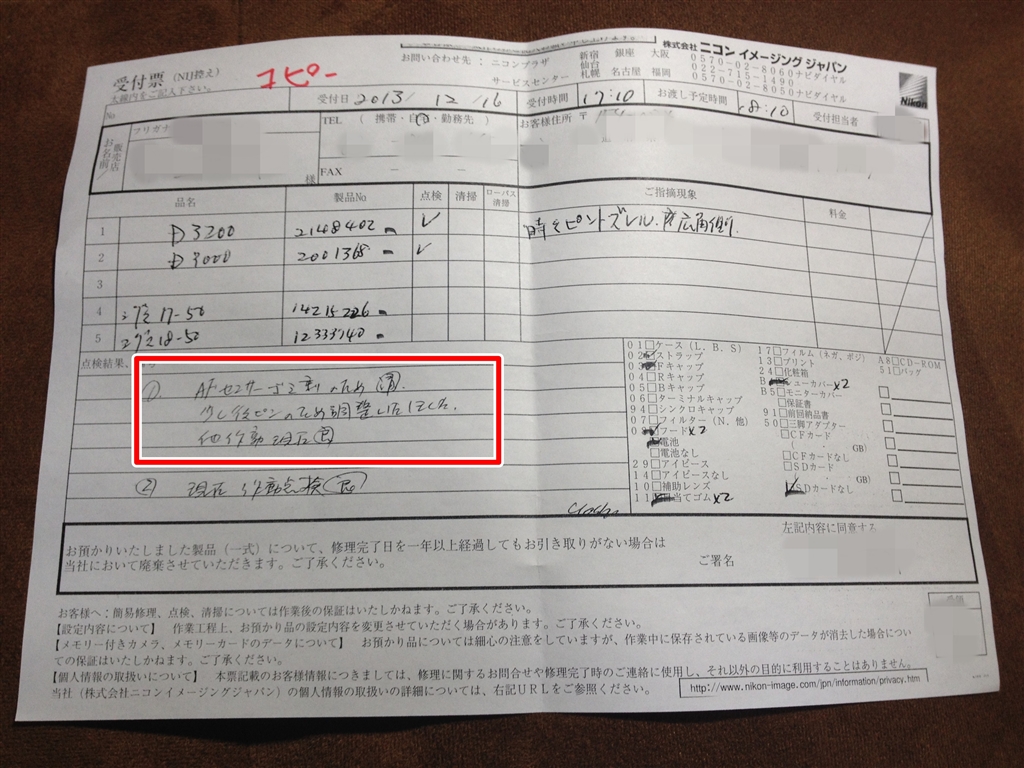 受付票 (NIJ控え)
太線内をご記入下さい。
コピー
お問い合わせ先 : ニコンプラザ 新宿 銀座 大阪
サービスセンター 仙台 札幌 名古屋 福岡
株式会社 ニコン イメージング ジャパン
0570-02-8060ナビダイヤル
022-715-1490
0570-02-8050ナビダイヤル
Nikon
No
受付日 2013/12/16 受付時間 17:10 お渡し予定時間 18:10 受付担当者
フリガナ
お名前/販売店
様
TEL ( 携帯・自宅・勤務先 )
FAX
お客様住所 〒
品名 製品No 点検 清掃 ローパス清掃 ご指摘現象 料金
1 D3200 2148402 ✓ 時々ピントズレル.
広角側.
2 D3000 2001368 ✓
3
4 17-50 14215226
5 18-50 12333740
点検結果、
① AFセンサー ゴミ のため
少し後ピンのため調整いたしました.
他作動 現在
② 現在 作動点検
01□ケース (L, B, S)
02 ストラップ
03 Fキャップ
04□Rキャップ
05□Bキャップ
06□ターミナルキャップ
94□シンクロキャップ
07□フィルター (N, 他)
08 フード x2
電池
□電池なし
29□アイピース
14□アイピースなし
10□補助レンズ
11 目当てゴム x2
17□フィルム (ネガ, ポジ)
13□プリント
24□化粧箱
シューカバー x2
B5□モニターカバー
□保証書
91□前回納品書
50□三脚アダプター
□CFカード
( ・ GB)
□CFカードなし
□SDカード
( ・ GB)
SDカードなし
A8□CD-ROM
51□バッグ
お預かりいたしました製品 (一式) について、修理完了日を一年以上経過してもお引き取りがない場合は
当社において廃棄させていただきます。ご了承ください。
左記内容に同意す
ご署名
お客様へ : 簡易修理、点検、清掃については作業後の保証はいたしかねます。ご了承ください。
【設定内容について】 作業工程上、お預かり品の設定内容を変更させていただく場合があります。ご了承ください。
【メモリー付きカメラ、メモリーカードのデータについて】 お預かり品については細心の注意をしていますが、作業中に保存されている画像等のデータが消失した場合につい
ての保証はいたしかねます。ご了承ください。
【個人情報の取扱いについて】 本票記載のお客様情報につきましては、修理に関するお問合せや修理完了時のご連絡に使用し、それ以外の目的に利用することはありません。
当社 (株式会社ニコンイメージングジャパン) の個人情報の取扱いの詳細については、右記URLをご参照ください。
http://www.nikon-image.com/jpn/information/privacy.htm